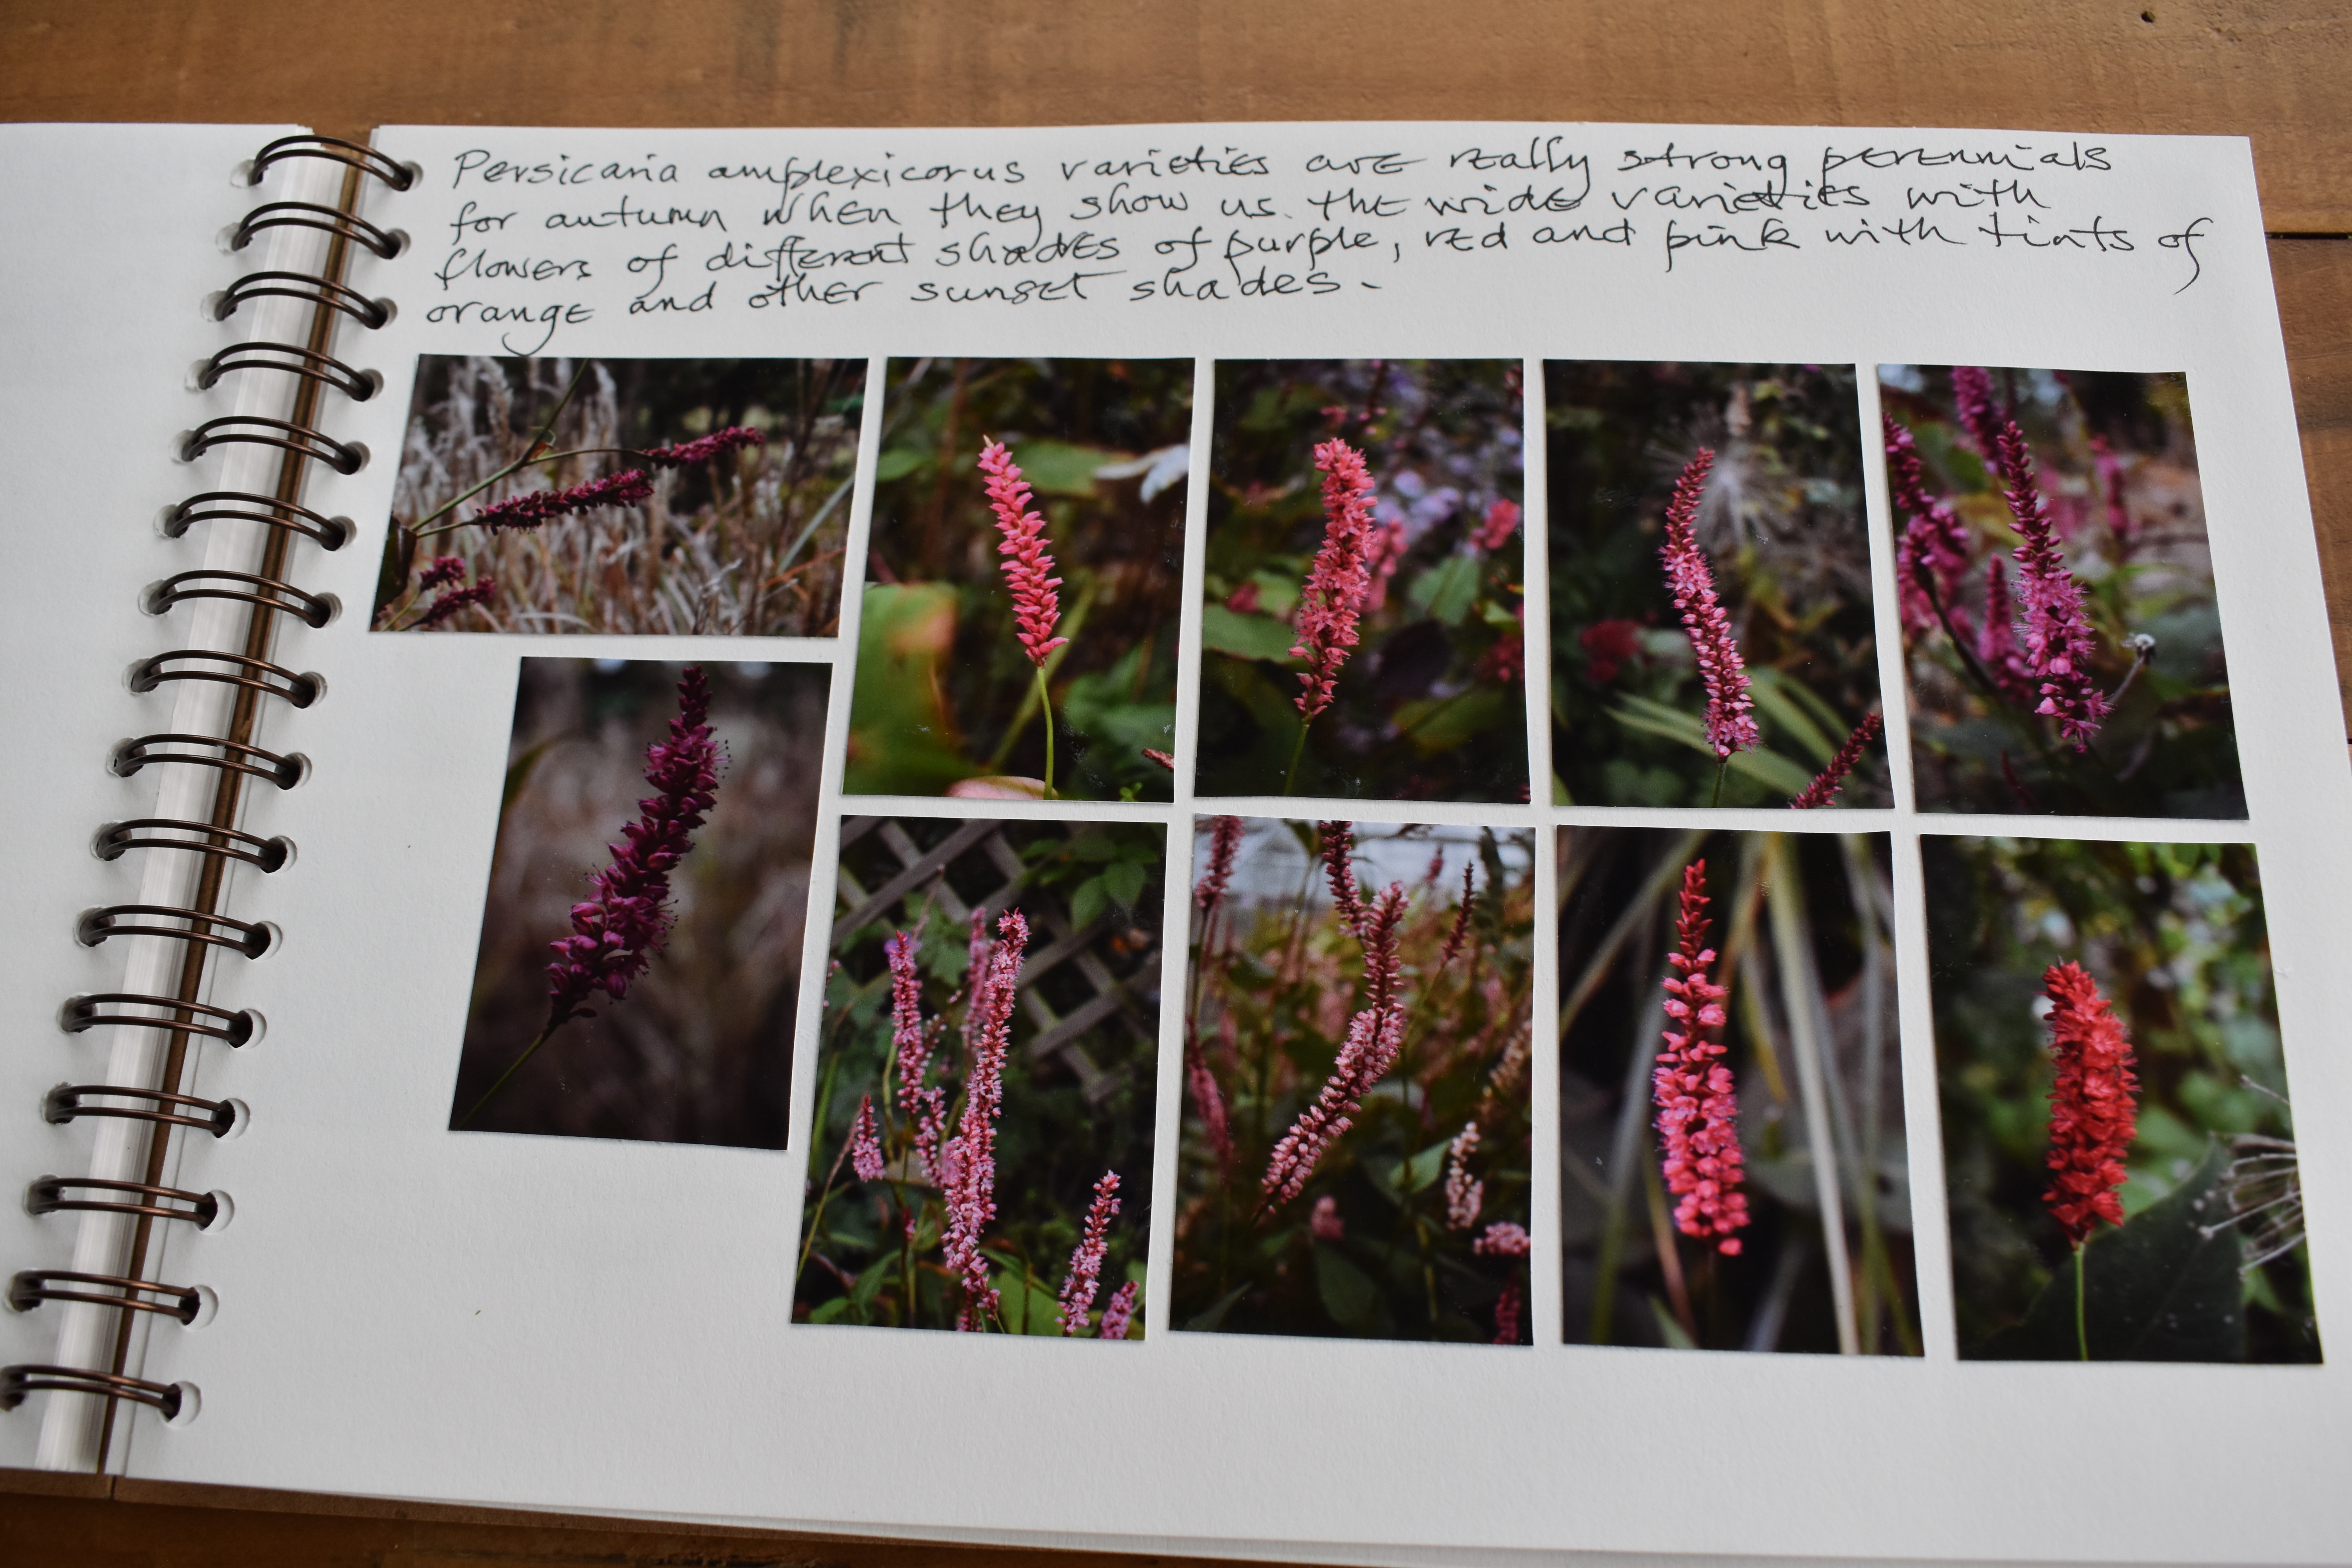 Persicaria amplexicorus varieties are really strong perennials
for autumn when they show us the wide varieties with
flowers of different shades of purple, red and pink with tints of
orange and other sunset shades.